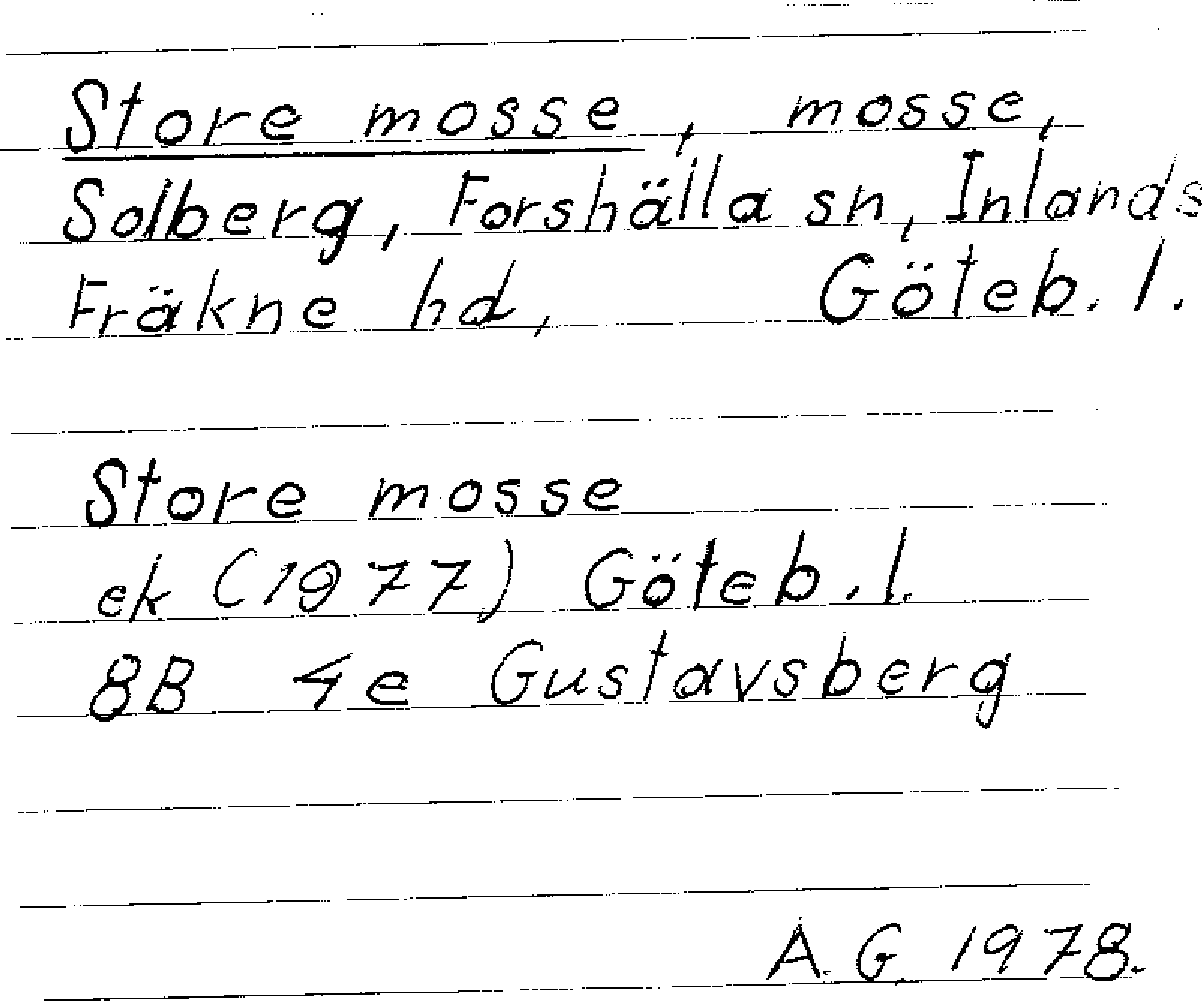 Store mosse, mosse,
Solberg, Forshälla sn, Inlands
Fräkne hd, Göteb. l.
Store mosse
ek (1977) Göteb. l.
8B 4e Gustavsberg
A. G. 1978.